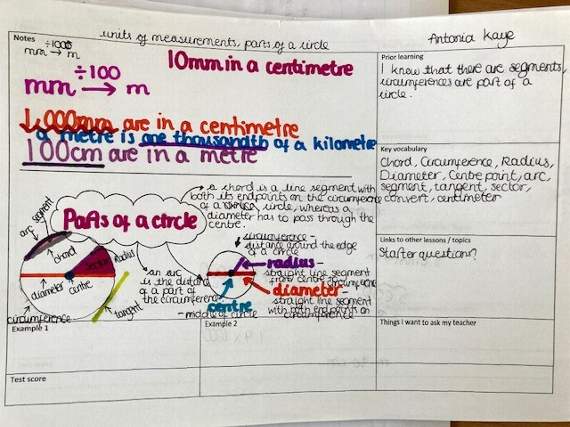 units of measurements, parts of a circle
Antonia Kaye
Notes
÷1000
mm → m
÷100
mm → m
10mm in a centimetre
1,000mm are in a centimetre
a metre is one thousandth of a kilometre
100cm are in a metre
Parts of a circle
a chord is a line segment with
both its endpoints on the circumference
of a circle, whereas a
diameter has to pass through the
centre.
arc
segment
chord
sector
radius
diameter
centre
circumference
tangent
an arc
is the distance
of a part of
the circumference
circumference -
distance around the edge
of a circle
radius -
straight line segment
from centre to
circumference
diameter -
straight line segment
with both endpoints on
circumference
centre
- middle of circle
Prior learning
I know that there are segments,
circumferences are part of a
circle.
Key vocabulary
Chord, Circumference, Radius,
Diameter, Centre point, arc,
segment, tangent, sector,
convert, centimeter
Links to other lessons / topics
Starter questions?
Example 1
Example 2
Things I want to ask my teacher
Test score